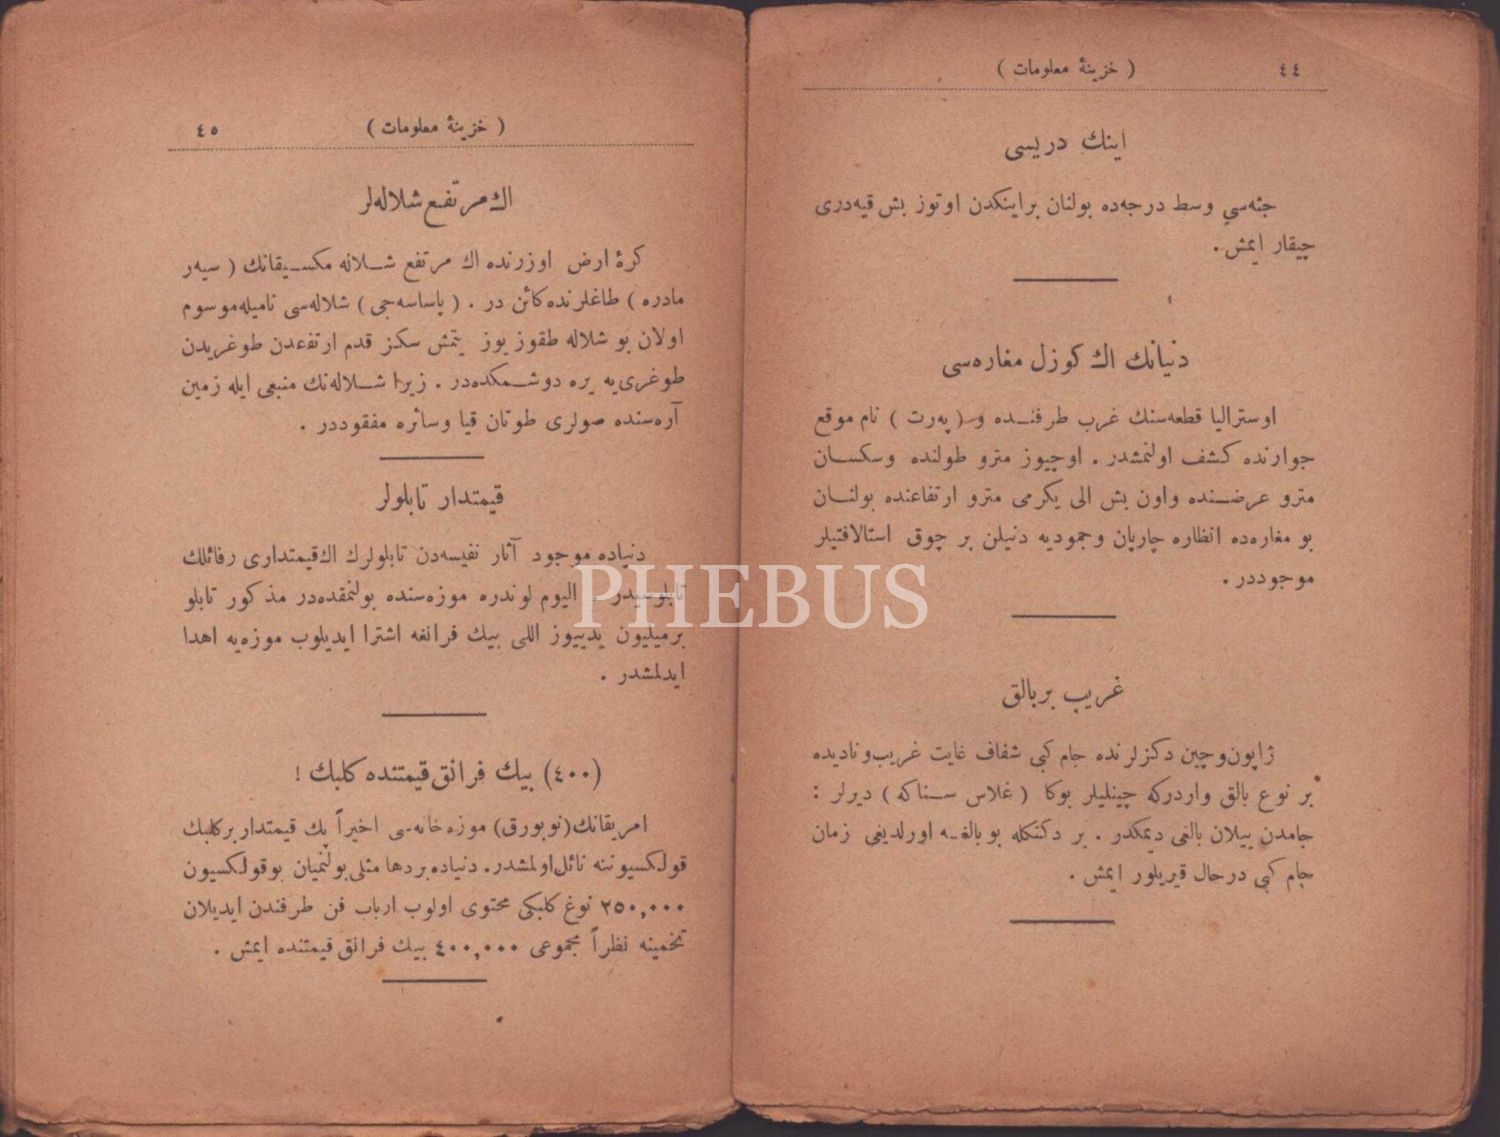 ٤٤ ( خزينهٔ معلومات )
اينك دريسى
جثه‌سي وسط درجه‌ده بولنان براينكدن اوتوز بش قيه‌درى
چيقار ايمش .
دنيانك اك كوزل مغاره‌سى
اوستراليا قطعه‌سنك غرب طرفنده و ( په‌رت ) نام موقع
جوارنده كشف اولنمشدر . اوچيوز مترو طولنده وسكسان
مترو عرضنده واون بش الى يكرمى مترو ارتفاعنده بولنان
بو مغاره‌ده انظاره چارپان وجموديه دنيلن بر چوق استالاقتيلر
موجوددر .
غريب بربالق
ژاپون‌وچين دكزلرنده جام كبى شفاف غايت غريب‌وناديده
بر نوع بالق واردركه چينليلر بوكا ( غلاس سناكه ) ديرلر :
جامدن ييلان بالغى ديمكدر . بر دكنكله بوبالغه اورلديغى زمان
جام كبى درحال قيريلور ايمش .
( خزينهٔ معلومات ) ٤٥
اك مرتفع شلاله‌لر
كرهٔ ارض اوزرنده اك مرتفع شلاله مكسيقانك ( سيه‌ر
مادره ) طاغلرنده‌كائن در . ( پاساسه‌جى ) شلاله‌سى ناميله‌موسوم
اولان بو شلاله طقوز يوز يتمش سكز قدم ارتفعدن طوغريدن
طوغرى‌يه يره دوشمكده‌در . زيرا شلاله‌نك منبعى ايله زمين
آره‌سنده صولرى طوتان قيا وسائره مفقوددر .
قيمتدار تابلولر
دنياده موجود آثار نفيسه‌دن تابلولرك اك‌قيمتدارى رفائلك
تابلوسيدر . اليوم لوندره موزه‌سنده بولنمقده‌در مذكور تابلو
برميليون يدييوز اللى بيك فرانغه اشترا ايديلوب موزه‌يه اهدا
ايدلمشدر .
(٤٠٠) بيك فرانق قيمتنده كلبك !
امريقانك (نويورق) موزه‌خانه‌سى اخيراً پك قيمتدار بركلبك
قولكسيوننه نائل‌اولمشدر. دنياده بردها مثلى بولنميان بوقولكسيون
٢٥٠,٠٠٠ نوغ كلبكى محتوى اولوب ارباب فن طرفندن ايديلان
تخمينه نظراً مجموعى ٤٠٠,٠٠٠ بيك فرانق قيمتنده ايمش .
PHEBUS